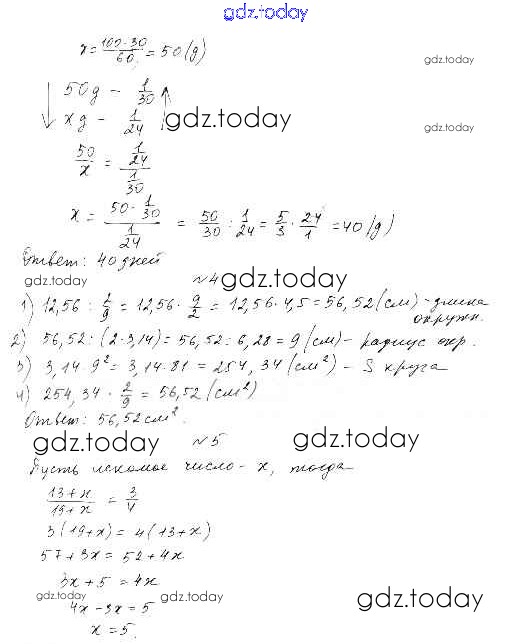 gdz.today
x = 100·30/60 = 50 (g)
gdz.today
↓ 50g – 1/30 ↑
xg – 1/24 gdz.today
gdz.today
50/x = 1/24 / 1/30
x = 50·1/30 / 1/24 = 50/30 : 1/24 = 5/3 · 24/1 = 40 (g)
Ответ: 40 дней
gdz.today №4 gdz.today
1) 12,56 : 2/9 = 12,56 · 9/2 = 12,56 · 4,5 = 56,52 (см) – длина окружн.
2) 56,52 : (2·3,14) = 56,52 : 6,28 = 9 (см) – радиус окр.
3) 3,14 · 9² = 3,14 · 81 = 254,34 (см²) – S круга
4) 254,34 · 2/9 = 56,52 (см²)
Ответ: 56,52 см².
gdz.today №5 gdz.today
Пусть искомое число – x, тогда
13+x / 19+x = 3/4
3(19+x) = 4(13+x)
57+3x = 52+4x
3x+5 = 4x
gdz.today gdz.today gdz.today
4x–3x = 5
x = 5.